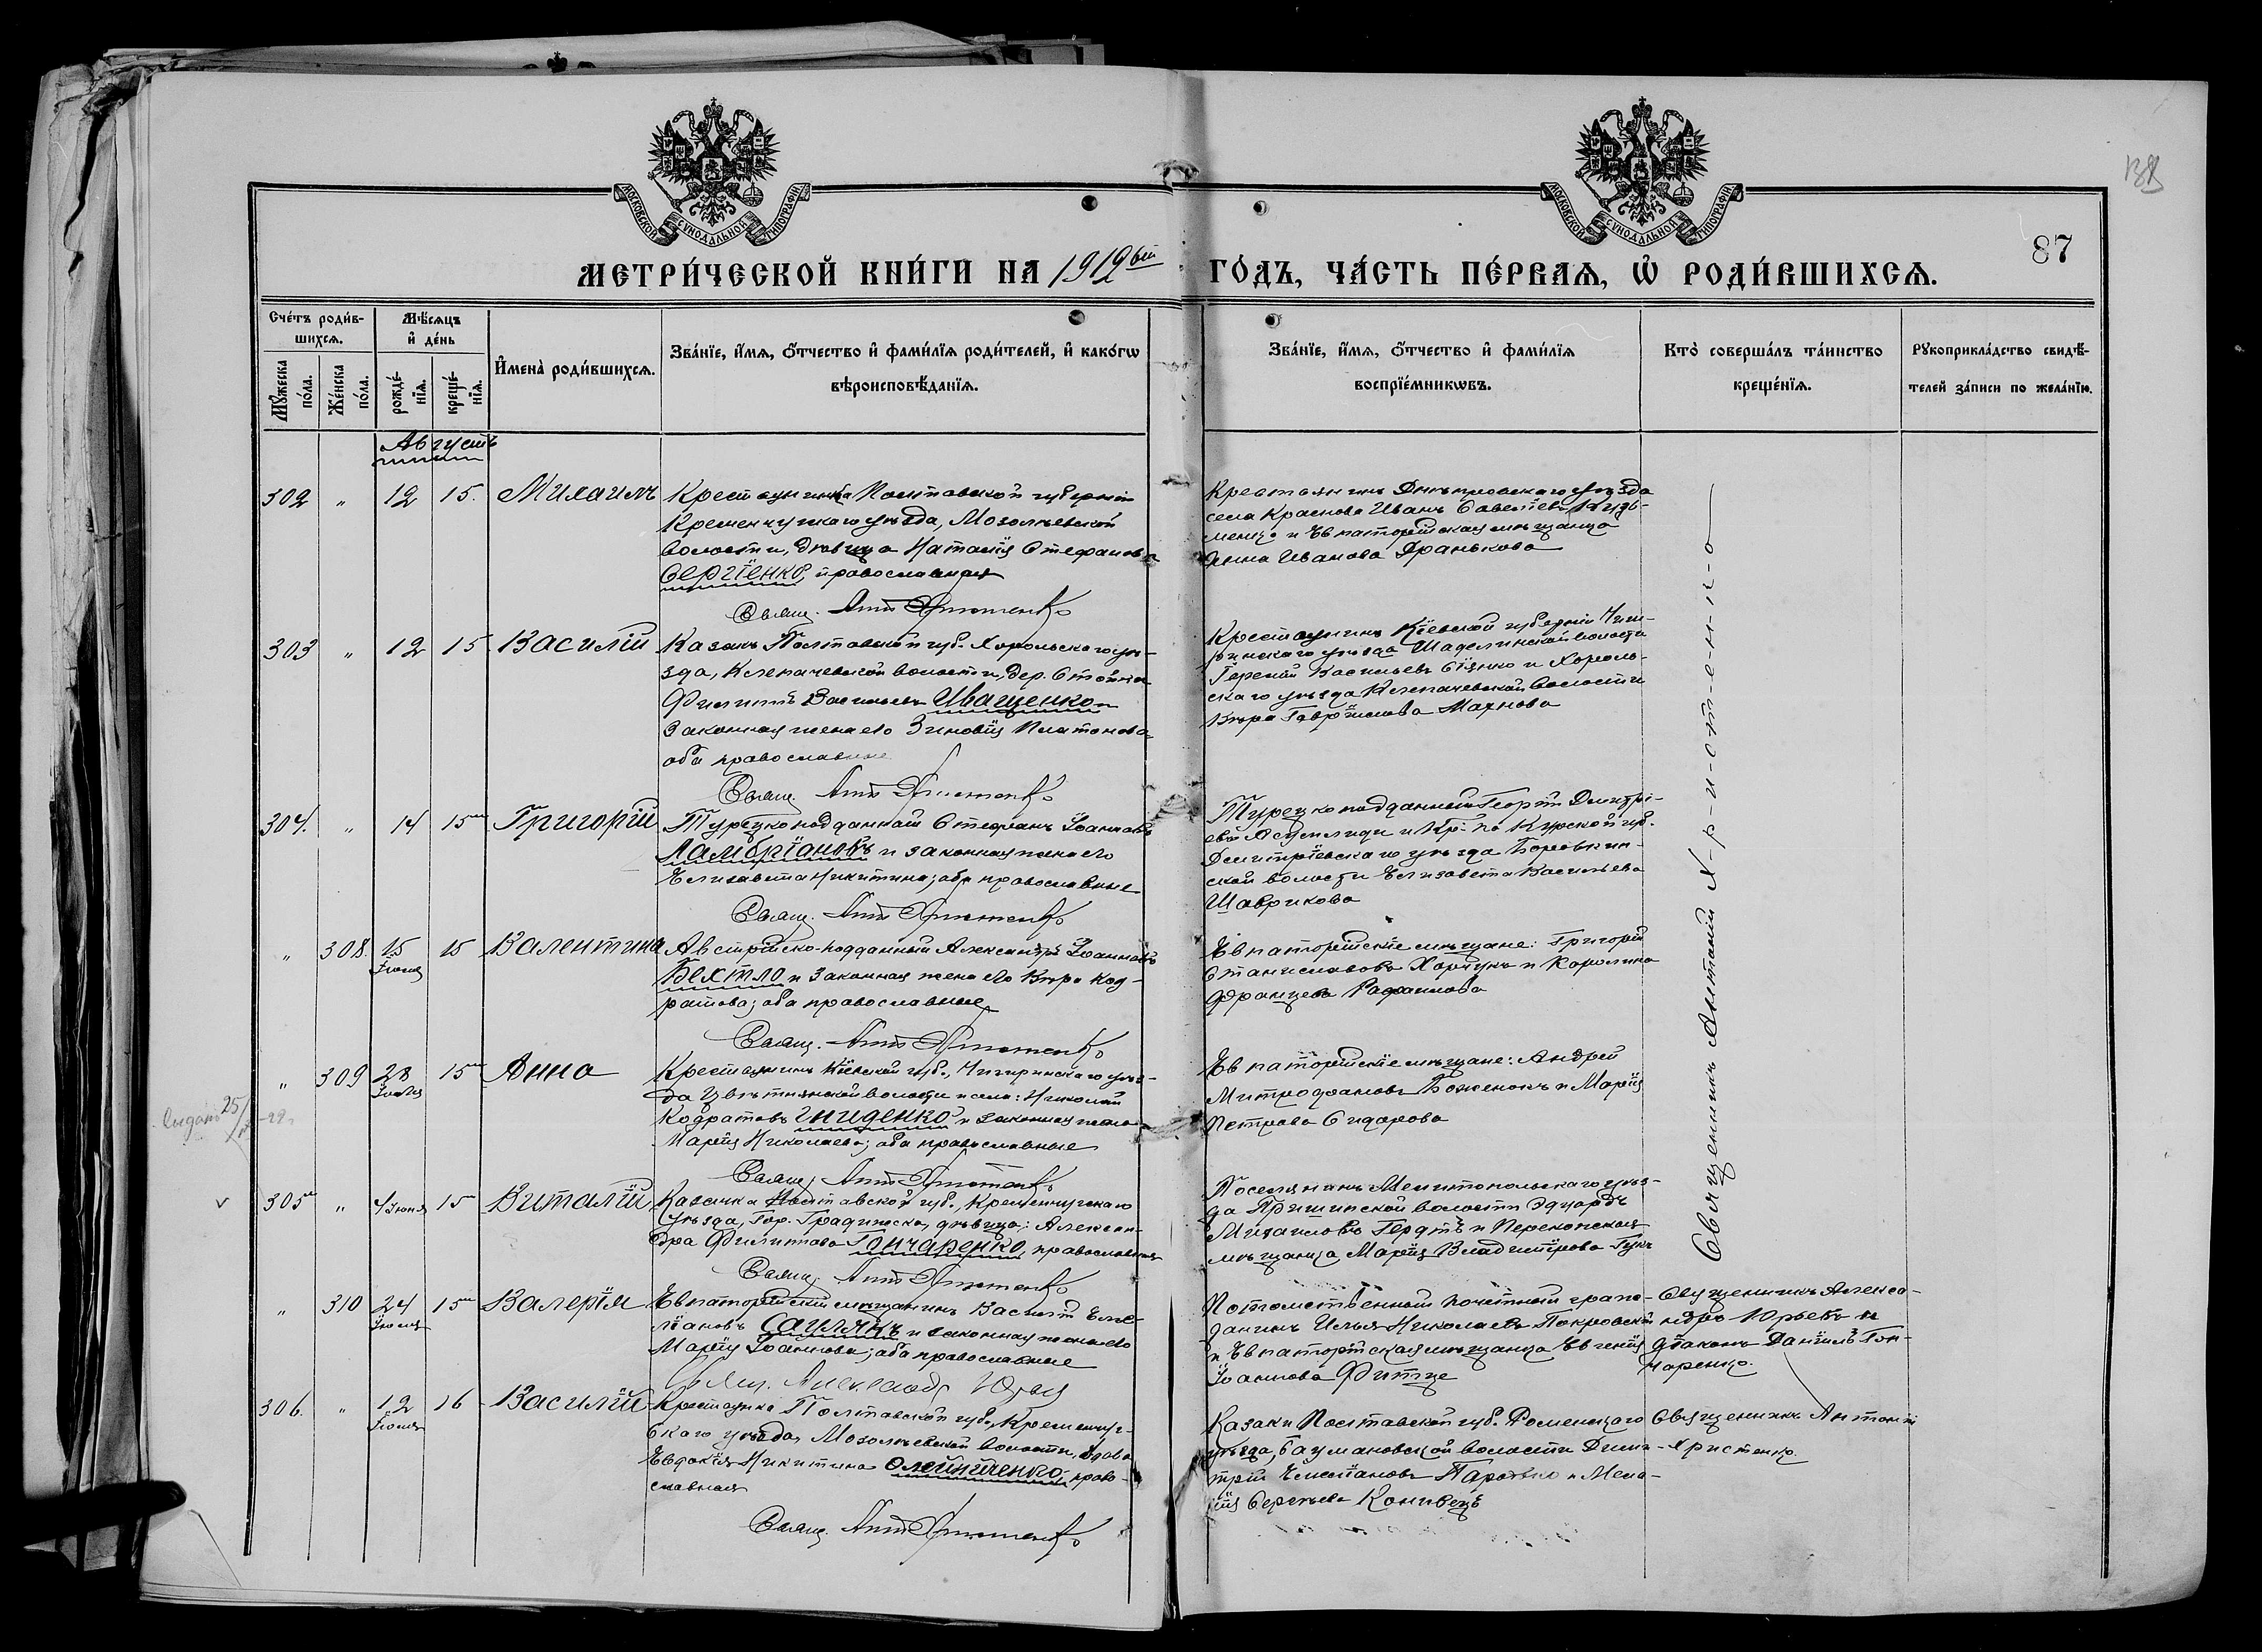 138
МОСКОВСКОЙ СѴНОДАЛЬНОЙ ТИПОГРАФІИ
МОСКОВСКОЙ СѴНОДАЛЬНОЙ ТИПОГРАФІИ
87
МЕТРИ́ЧЕСКОЙ КНИ́ГИ НА 1912ый ГО́ДЪ, ЧА́СТЬ ПЕ́РВАѦ, Ѡ РОДИ́ВШИХСѦ.
Сче́тъ роди́в-
шихсѧ.
Мꙋ́жеска
по́ла.
Же́нска
по́ла.
Мѣ́сѧцъ
и҆ де́нь
рожде́-
нїѧ.
креще́-
нїѧ.
И҆мена̀ роди́вшихсѧ.
Зва́нїе, и҆́мѧ, ѻ҆́тчество и҆ фами́лїѧ роди́телей, и҆ како́гѡ
вѣроисповѣ́данїѧ.
Зва́нїе, и҆́мѧ, ѻ҆́тчество и҆ фами́лїѧ
воспрїе́мникѡвъ.
Кто̀ соверша́лъ та́инство
креще́нїѧ.
Рꙋкоприкла́дство свидѣ́-
телей за́писи по жела́нїю.
Августъ
302 " 12 15. Михаилъ
Крестьянка Полтавской губерніи
Кременчугскаго уѣзда, Мозолѣевской
волости, дѣвица Наталія Стефанова
Сергіенко, православная
Свящ. Ант. Христенко
Крестьянинъ Днѣпровскаго уѣзда
села Краснова Иванъ Савеліевъ Кузь-
менко и Евпаторійская мѣщанка
Ивановна Дранькова
303 " 12 15 Василій
Казакъ Полтавской губ. Хорольскаго уѣ-
зда, Клепачевской волости, дер.
Филиппъ Васильевъ Иващенко и
законная жена его Зиновія Платонова
оба православные
Свящ. Ант. Христенко
Крестьянинъ Кіевской губерніи Чиги-
ринскаго уѣзда Шабелинской волости
Васильевъ и Хороль-
скаго уѣзда Клепачевской волости
Вѣра Гавріилова Махнова
304. " 14 15го Григорій
Турецко подданный Стефанъ Іоанновъ
Ламбріановъ и законная жена его
Елисавета Никитина; оба православные
Свящ. Ант. Христенко
Турецко подданный Георгій Димитрі-
евъ и Кр-ка Курской губ.
Димитріевскаго уѣзда
ской волости Елизавета Васильева
Шаврикова
" 308. 15 Іюня 15 Валентина
Австрійско-подданный Александръ Іоанновъ
Бехтло и законная жена его Вѣра Код-
ратова; оба православные
Свящ. Ант. Христенко
Евпаторійскіе мѣщане: Григорій
Станиславовъ Харчукъ и Каролина
Францева Рафаилова
" 309 28 Іюля 15го Анна
Крестьянинъ Кіевской губ., Чигиринскаго уѣз-
да Цвѣтнянской волости и села: Николай
Кодратовъ Гниденко и законная жена
Марія Николаева; оба православные
Свящ. Ант. Христенко
Евпаторійскіе мѣщане: Андрей
Митрофановъ Боженокъ и Марія
Петрова Сидорова
305го " 4 Іюня 15 Виталій
Казачка Полтавской губ., Кременчугскаго
уѣзда, Гор. Градижска, дѣвица: Алексан-
дра Филиппова Гончаренко, православная
Свящ. Ант. Христенко
Поселянинъ Мелитопольскаго уѣз-
да Пришинской волости Эдуардъ
Михаиловъ Гердтъ и Перекопская
мѣщанка Марія Владимірова
" 310 24 Іюля 15го Валерія
Евпаторійскій мѣщанинъ Василій Еме-
ліановъ Саулякъ и законная жена его
Марія Іоаннова; оба православные
Свящ. Александръ Юрьевъ
Потомственный почетный граж-
данинъ Илья Николаевъ Покровскій
и Евпаторійская мѣщанка Евгенія
Іоаннова Фитце
Священникъ Алекса-
ндръ Юрьевъ и
діаконъ Даніилъ Гон-
чаренко.
306. " 12 Іюля 16 Василій
Крестьянка Полтавской губ., Кременчуг-
скаго уѣзда, Мозолѣевской волости, вдова
Евдокія Никитина Олейниченко, право-
славная
Свящ. Ант. Христенко
Казаки Полтавской губ. Роменскаго
уѣзда, волости Дими-
трій Емеліановъ и Мела-
нія Сергѣева Конивецъ
Священникъ Антоній
Христенко
Священникъ Антоній Х-р-и-с-т-е-н-к-о